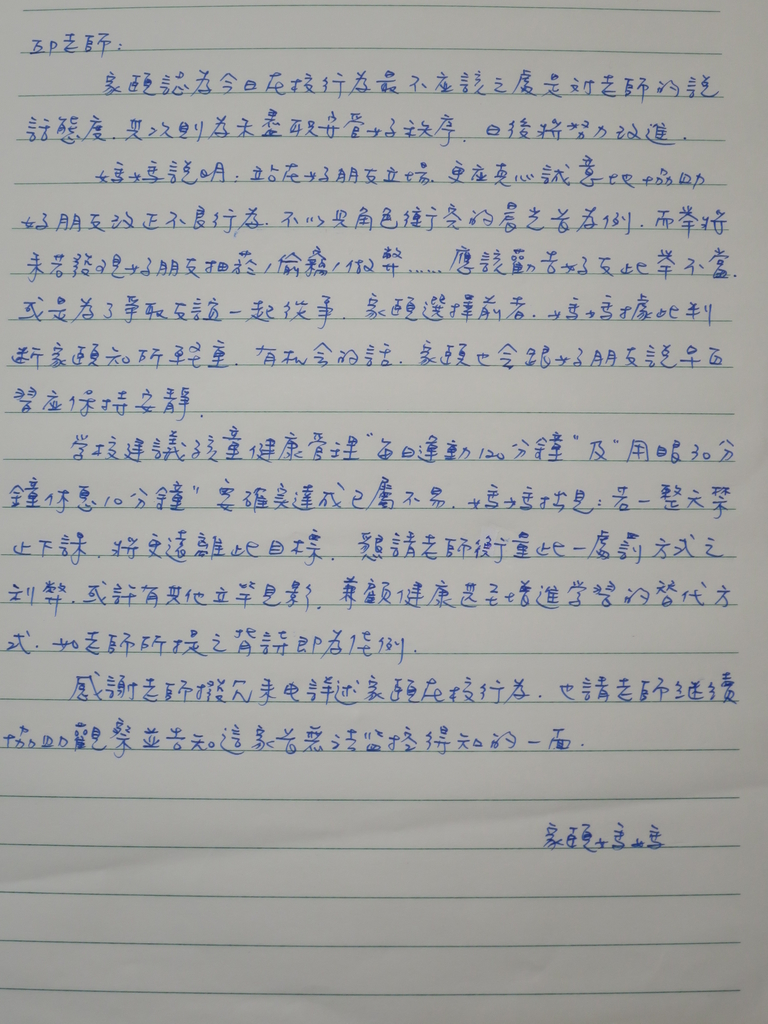 邱老師：
家頤認為今日在校行為最不應該之處是對老師的說
話態度．其次則為未盡職守管好秩序．日後將努力改進．
媽媽說明：站在好朋友立場．更應真心誠意地協助
好朋友改正不良行為．不以與角色衝突的晨光為例．而舉將
來若發現好朋友抽菸/偷竊/做弊……應該勸告好友此舉不當．
或是為了爭取友誼一起從事．家頤選擇前者．媽媽據此判
斷家頤知所輕重．有机会的話．家頤也会跟好朋友說早自
習應保持安靜．
学校建議孩童健康管理"每日運動120分鐘"及"用眼30分
鐘休息10分鐘"要確實達成已屬不易．媽媽拙見：若一整天禁
止下課．將更遠離此目標．懇請老師衡量此一處罰方式之
利弊．或許有其他立竿見影．兼顧健康甚至增進学習的替代方
式．如老師所提之背詩即為佳例．
感謝老師撥冗來电詳述家頤在校行為．也請老師继续
協助觀察並告知這家長無法监控得知的一面．
家頤媽媽